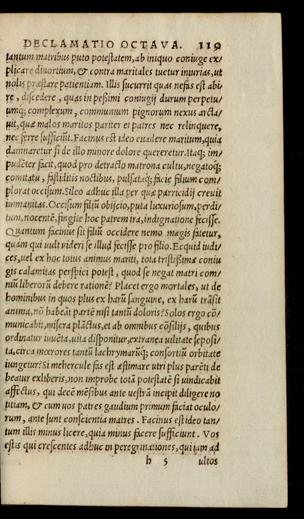 DECLAMATIO OCTAVA. 119
tantum matribus puto potestatem, ab iniquo coniuge ex/
plicare diuortium, & contra maritales tuetur iniurias, ut
nolis præstare patientiam. Illis sucurrit quas nefas est abi
re, discedere, quas in peßimi coniugij durum perpetu/
umq; complexum, communium pignorum nexus arcta/
uit, quæ malos maritos pariter ei patres nec relinquere,
nec ferre sufficiũt. Facinus est ideo euadere maritum, quia
damnaretur si de illo minore dolore quereretur. Itaq; im/
pudẽter facit, quod pro detracto matrona cultu, negatoq;
comitatu, fastiditis noctibus, pulsataq; facie filium com/
plorat occisum. Sileo adhuc illa per quæ parricidij creuit
immanitas. Occisum filiũ obijcio, puta luxuriosum, perdi/
tum, nocentẽ, fingite hoc patrem ira, indignatione fecisse.
Quantum facinus sit filiũ occidere nemo magis fatetur,
quàm qui uult uideri se illud fecisse pro filio. Ecquid iudi/
ces, uel ex hoc totius animus mariti, tota tristißimæ coniu
gis calamitas perspici potest, quod se negat matri com/
niũ liberorũ debere rationẽ? Placet ergo mortales, ut de
hominibus in quos plus ex harũ sanguine, ex harũ trãsit
anima, nõ habeãt partẽ nisi tantũ doloris? Solos ergo cõ/
municabit, misera plãctus, et ab omnibus cõsilijs, quibus
ordinatur iuuẽta, uita disponitur, extranea uilitate seposi/
ta, circa mœrores tantũ lachrymarũq; consortiũ orbitate
iungetur? Si mehercule fas est æstimare utri plus parẽti de
beatur exliberis, non improbe totã potestatẽ si uindicabit
affectus, qui decẽ mẽsibus ante uestrã incipit diligere no
titiam, & cum uos patres gaudium primum faciat oculo/
rum, ante sunt conscientia matres. Facinus est ideo tan/
tum illis minus licere, quia minus facere sufficiunt. Vos
estis qui crescentes adhuc in peregrinationes, qui iam ad
h 5 ultos